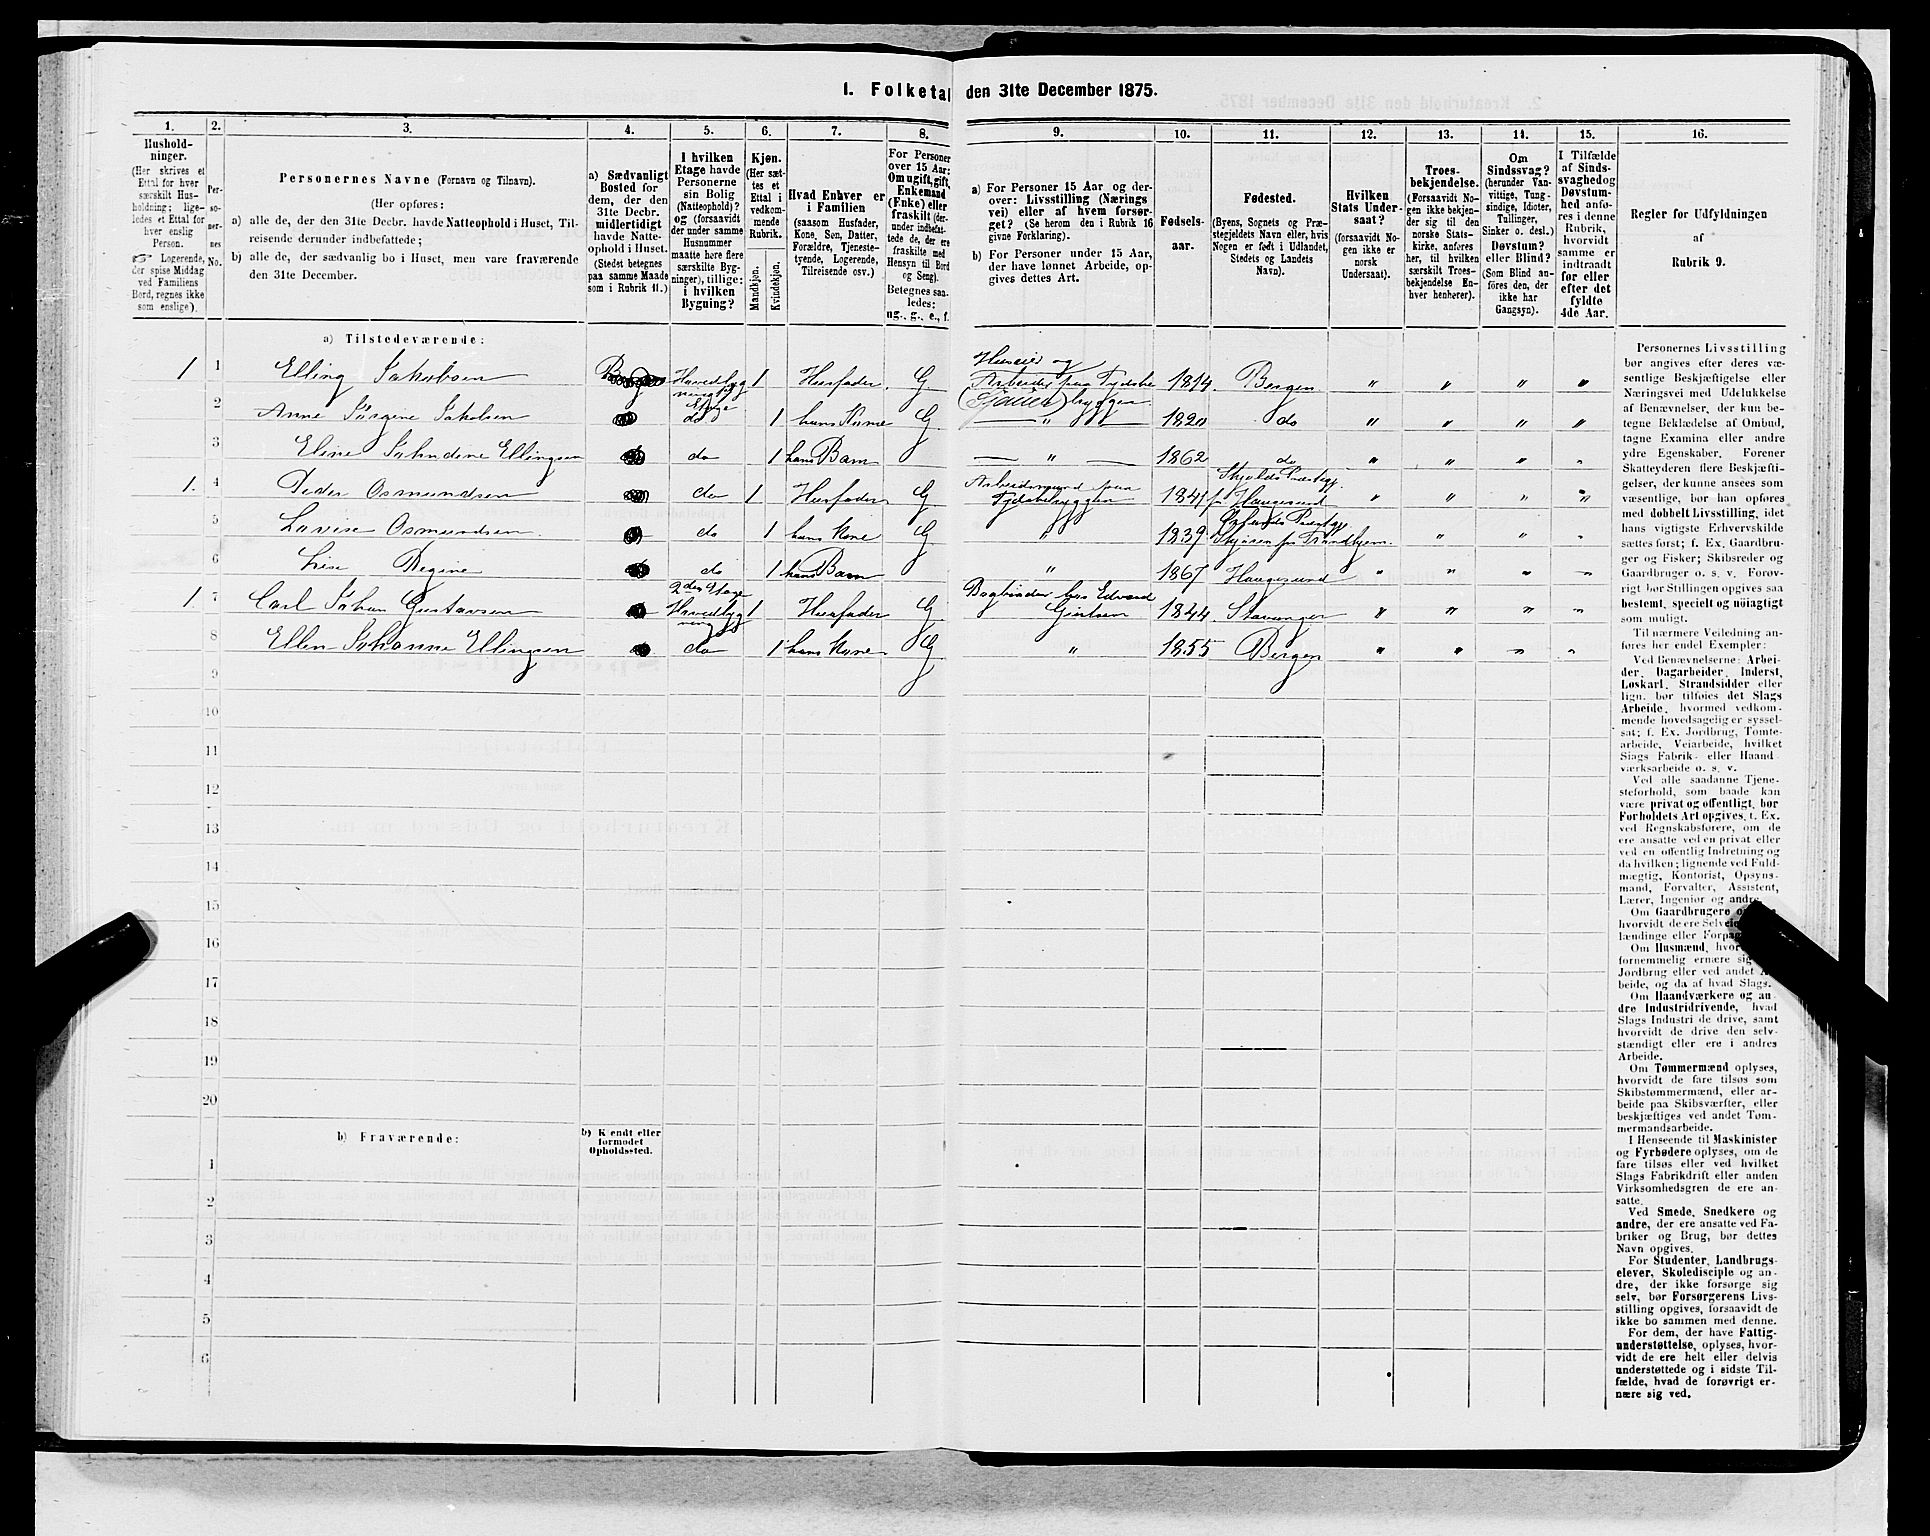 1. Folketal den 31te December 1875.
1. 2. 3. 4. 5. 6. 7. 8. 9. 10. 11. 12. 13. 14. 15. 16.
Hushold-
ninger.
(Her skrives et
Ettal for hver
særskilt Hus-
holdning; lige-
ledes et Ettal for
hver enslig
Person.
☞ Logerende,
der spise Middag
ved Familiens
Bord, regnes ikke
som enslige).
Per-
so-
ner-
nes
No.
Personernes Navne (Fornavn og Tilnavn).
(Her opføres:
a) alle de, der den 31te Decbr. havde Natteophold i Huset, Til-
reisende derunder indbefattede;
b) alle de, der sædvanlig bo i Huset, men vare fraværende
den 31te December.
a) Sædvanligt
Bosted for
dem, der den
31te Decbr.
midlertidigt
havde Natte-
ophold i Huset.
(Stedet betegnes
paa samme Maade
som i Rubrik 11.)
I hvilken
Etage havde
Personerne
sin Bolig
(Natteophold)?
og (forsaavidt
der under samme
Husnummer
maatte høre flere
særskilte Byg-
ninger), tillige:
i hvilken
Bygning?
Kjøn.
(Her sæt-
tes et
Ettal i
vedkom-
mende
Rubrik.
Mandkjøn.
Kvindekjøn.
Hvad Enhver er
i Familien
(saasom Husfader,
Kone, Søn, Datter,
Forældre, Tjeneste-
tyende, Logerende,
Tilreisende osv.)
For Personer
over 15 Aar:
Om ugift, gift,
Enkemand
(Enke) eller
fraskilt (der-
under indbefat-
tede de, der ere
fraskilte med
Hensyn til Bord
og Seng).
Betegnes saa-
ledes:
ug., g., e., f.
a) For Personer 15 Aar og der-
over: Livsstilling (Nærings
vei) eller af hvem forsør-
get? (Se herom den i Rubrik 16
givne Forklaring).
b) For Personer under 15 Aar,
der have lønnet Arbeide, op-
gives dettes Art.
Fødsels-
aar.
Fødested.
(Byens, Sognets og Præ-
stegjeldets Navn eller, hvis
Nogen er født i Udlandet,
Stedets og Landets
Navn).
Hvilken
Stats Under-
saat?
(forsaavidt No-
gen ikke er
norsk
Undersaat).
Troes-
bekjendelse.
(Forsaavidt No-
gen ikke bekjen-
der sig til den
norske Stats-
kirke, anføres
her, til hvilken
særskilt Troes-
bekjendelse En-
hver henhører).
Om
Sindssvag?
(herunder Van-
vittige, Tung-
sindige, Idioter,
Tullinger,
Sinker o. desl.)
Døvstum?
eller Blind?
(Som Blind an-
føres den, der
ikke har
Gangsyn).
I Tilfælde
af Sinds-
svaghed og
Døvstum-
hed anfø-
res i denne
Rubrik,
hvorvidt
samme er
indtraadt
før eller
efter det
fyldte
4de Aar.
Regler for Udfyldningen
af
Rubrik 9.
a) Tilstedeværende:
1 1 Elling Jakobsen Hovedbyg 1 Husfader. G Huseier og 1814. Bergen " " " "
ningens Arbeider paa Tydske
2 Anne Jørgene Jakobsen Etage do 1 hans Kone G " 1820 do " " " "
3 Eline Jahndine Ellingsen do 1 hans Barn " 1862 do " " " "
1. 4 Peder Osmundsen do 1 Husfader G Arbeidsmand paa Tydskebryggen 1841 Skjolds Præstegj. pr Haugesund " " " "
5 Lovise Osmundsen. do 1 hans Kone G " 1839 Ørlands Præstgj. pr Trondhjem " " "
6 Lise Regine do 1 hans Barn " 1867 Haugesund " " " "
1. 7 Carl Johan Gustavsen 2den Etage Hovedbyg ning 1 Husfader G Bogbinder hos Edvard Giertsen 1844. Stavanger " " " "
8 Ellen Johanne Ellingsen do 1 hans Kone G " 1855 Bergen " " " "
9
10
11
12
13
14
15
16
17
18
19
20
b) Fraværende: b) Kendt eller
formodet
Opholdssted.
1
2
3
4
5
6
Personernes Livsstilling
bør angives efter deres væ-
sentlige Beskjæftigelse eller
Næringsvei med Udelukkelse
af Benævnelser, der kun be-
tegne Beklædelse af Ombud,
tagne Examina eller andre
ydre Egenskaber. Forener
Skatteyderen flere Beskjæfti-
gelser, der kunne ansees som
væsentlige, bør han opføres
med dobbelt Livsstilling, idet
hans vigtigste Erhvervskilde
sættes først; f. Ex. Gaardbru-
ger og Fisker; Skibsreder og
Gaardbruger o. s. v. Forøv-
rigt bør Stillingen opgives saa
bestemt, specielt og nøiagtigt
som muligt.
Til nærmere Veiledning an-
føres her endel Exempler:
Ved Benævnelserne: Arbei-
der, Dagarbeider, Inderst,
Løskarl, Strandsidder eller
lign. bør tilføies det Slags
Arbeide, hvormed vedkom-
mende hovedsagelig er syssel-
sat; f. Ex. Jordbrug, Tomte-
arbeide, Veiarbeide, hvilket
Slags Fabrik- eller Haand-
værksarbeide o. s. v.
Ved alle saadanne Tjene-
steforhold, som baade kan
være privat og offentligt, bør
Forholdets Art opgives, t. Ex.
ved Regnskabsførere, om de
ere ansatte ved en privat eller
ved en offentlig Indretning og
da hvilken; lignende ved Fuld-
mægtig, Kontorist, Opsyns-
mand, Forvalter, Assistent,
Lærer, Ingeniør og andre.
Om Gaardbrugere
hvorvidt de ere Selveie
lændinge eller Forpa
Om Husmænd, hvor
fornemmelig ernære sig
Jordbrug eller ved andet
beide, og da af hvad Slags.
Om Haandværkere og an-
dre Industridrivende, hvad
Slags Industri de drive, samt
hvorvidt de drive den selv-
stændigt eller ere i andres
Arbeide.
Om Tømmermænd oplyses,
hvorvidt de fare tilsøs som
Skibstømmermænd, eller ar-
beide paa Skibsværfter, eller
beskjæftiges ved andet Tøm-
mermandsarbeide.
I Henseende til Maskinister
og Fyrbødere oplyses, om de
fare tilsøs eller ved hvilket
Slags Fabrikdrift eller anden
Virksomhedsgren de ere an-
satte.
Ved Smede, Snedkere og
andre, der ere ansatte ved Fa-
briker og Brug, bør dettes
Navn opgives.
For Studenter, Landbrugs-
elever, Skoledisciple og an-
dre, der ikke forsørge sig
selv, bør Forsørgerens Livs-
stilling opgives, forsaavidt de
ikke bo sammen med denne.
For dem, der have Fattig-
understøttelse, oplyses, hvor-
vidt de ere helt eller delvis
understøttede og i sidste Til-
fælde, hvad de forøvrigt er-
nære sig ved.